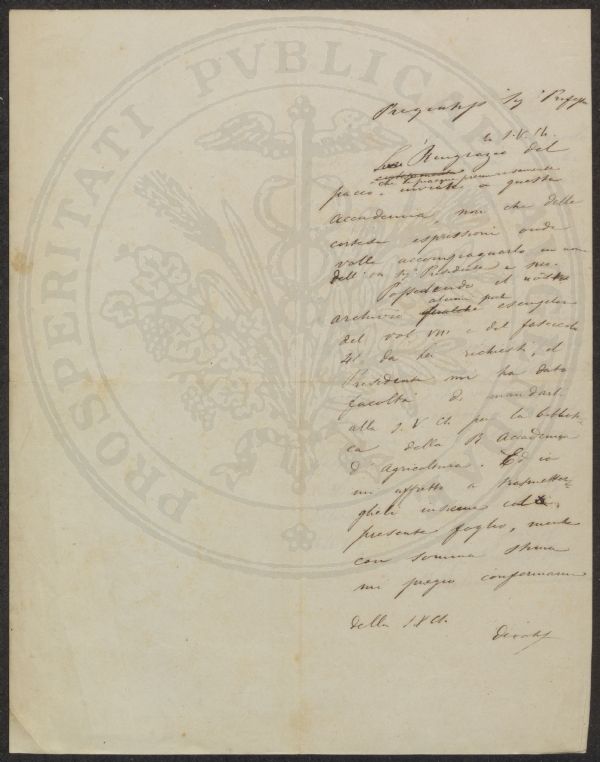 PROSPERITATI PVBLICAE
Sig. Profess
La S.V. Ch.
Ringrazio del
pacco inviato a questa
che le piacque
Accademia, non che delle
cortesi espressioni onde
volle accompagnarlo in nome
dell' on. Sig. Presidente e mio.
Possedendo il nostro
archivio qualche esemplare
alcuni pochi
del vol. VIII e del fascicolo
41 da lei richiesti, il
Presidente mi ha dato
facoltà di mandarli
alla S.V. Ch. per la bibliote-
ca della R. Accademia
d'Agricoltura. Ed io
mi affretto a trasmetter-
glieli insieme col
presente foglio, mentre
con somma stima
mi pregio confermarmi
della S.V. Ch.